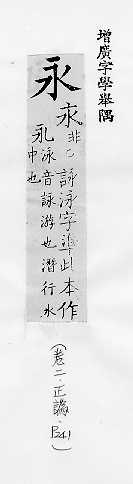 增廣字學舉隅
永
非 詠泳字準此本作
泳音詠游也潛行水
中也
(卷二·正譌·P241)